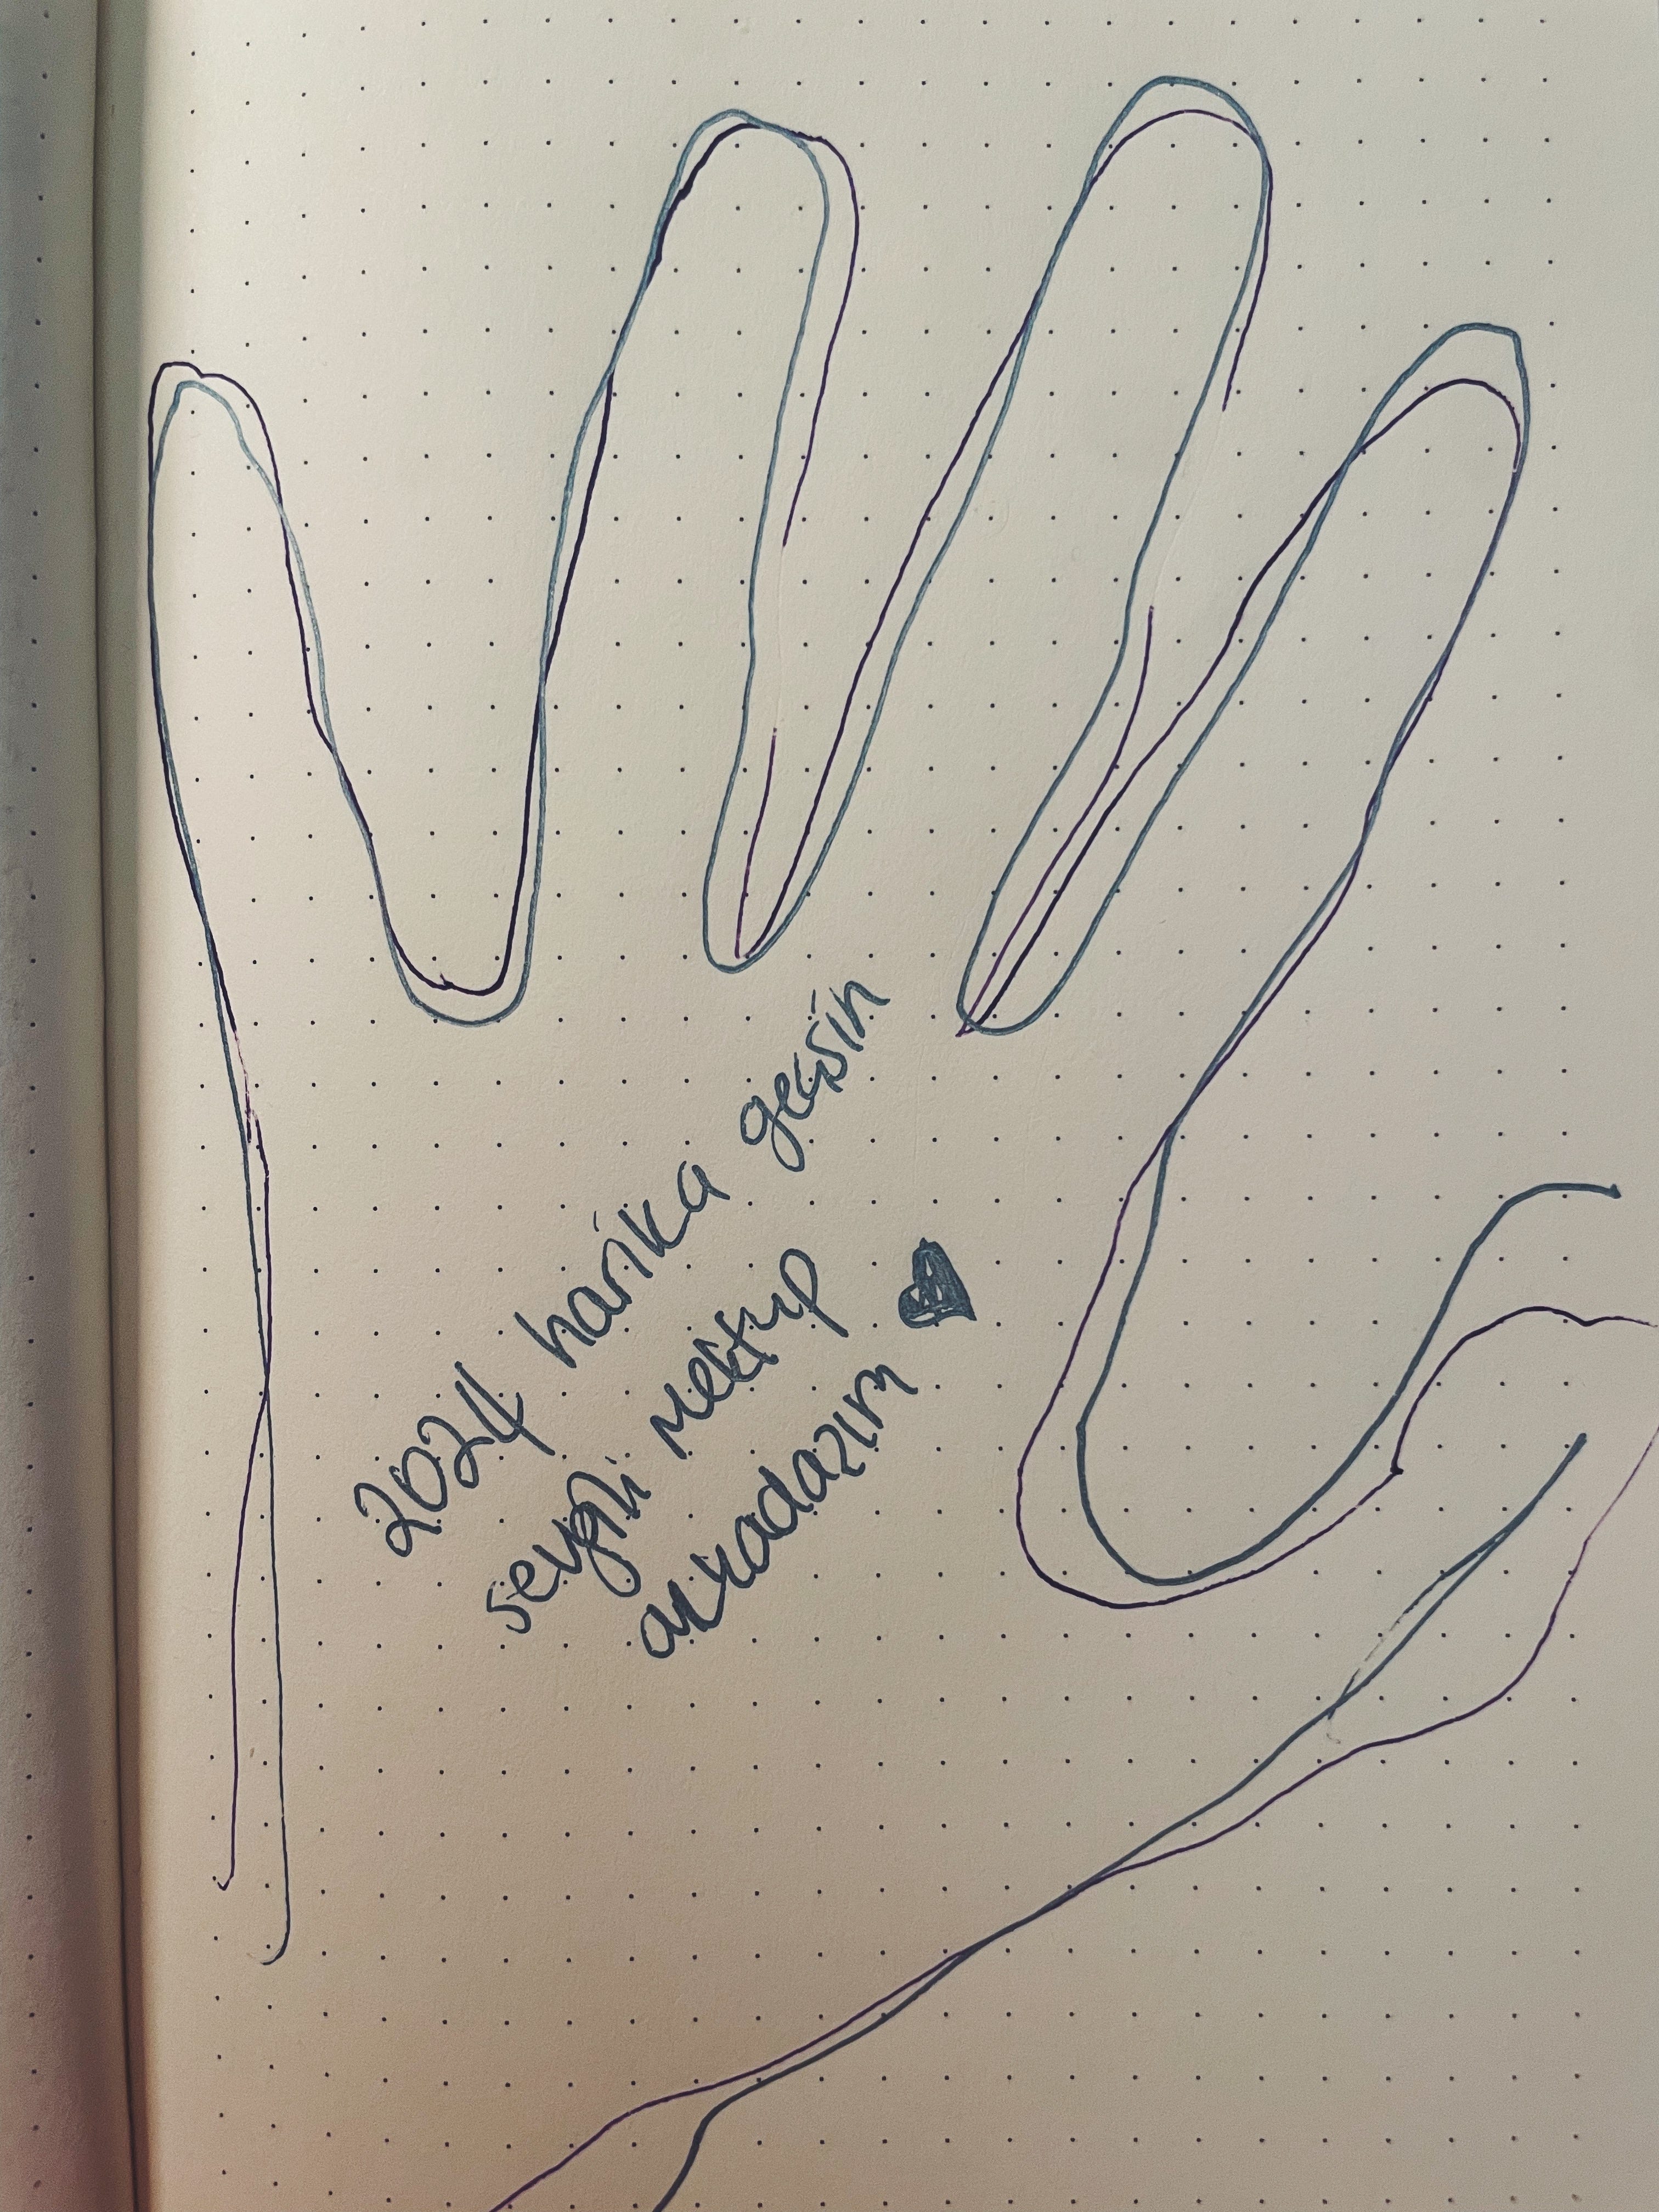 2024 harika geçsin
sevgili mektup
arkadaşım